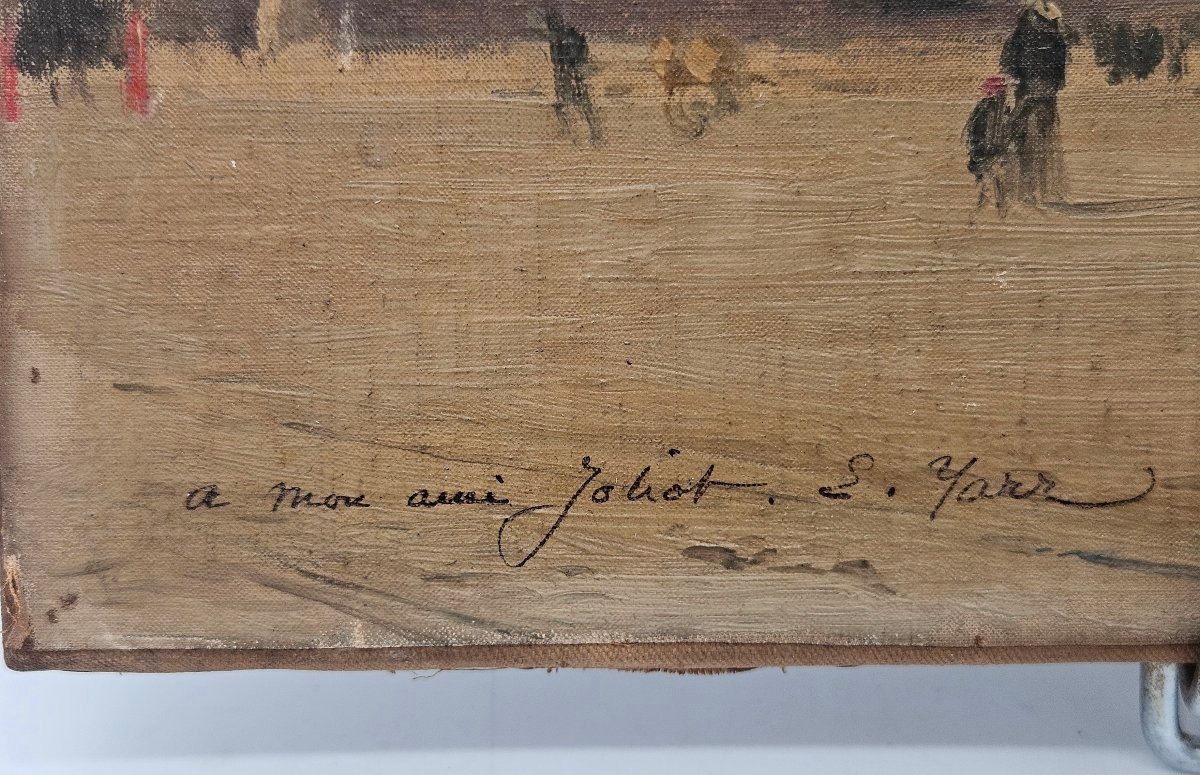 a mon ami Joliot. E. Yarz